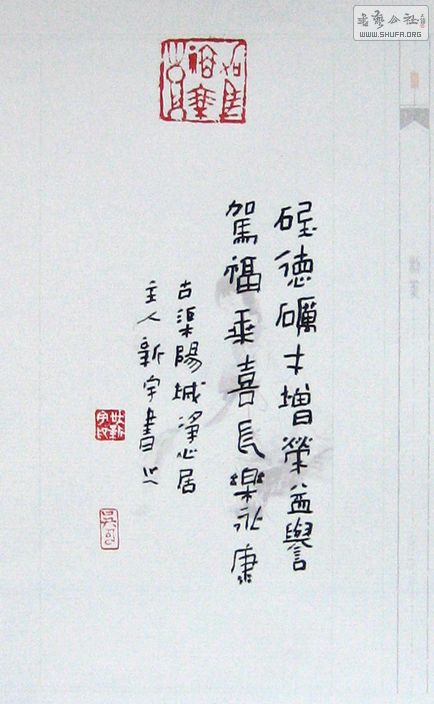 書藝公社
WWW.SHUFA.ORG
砥德礪才增榮益譽
駕福乘喜長樂永康
古渠陽城淨心居
主人新宇書